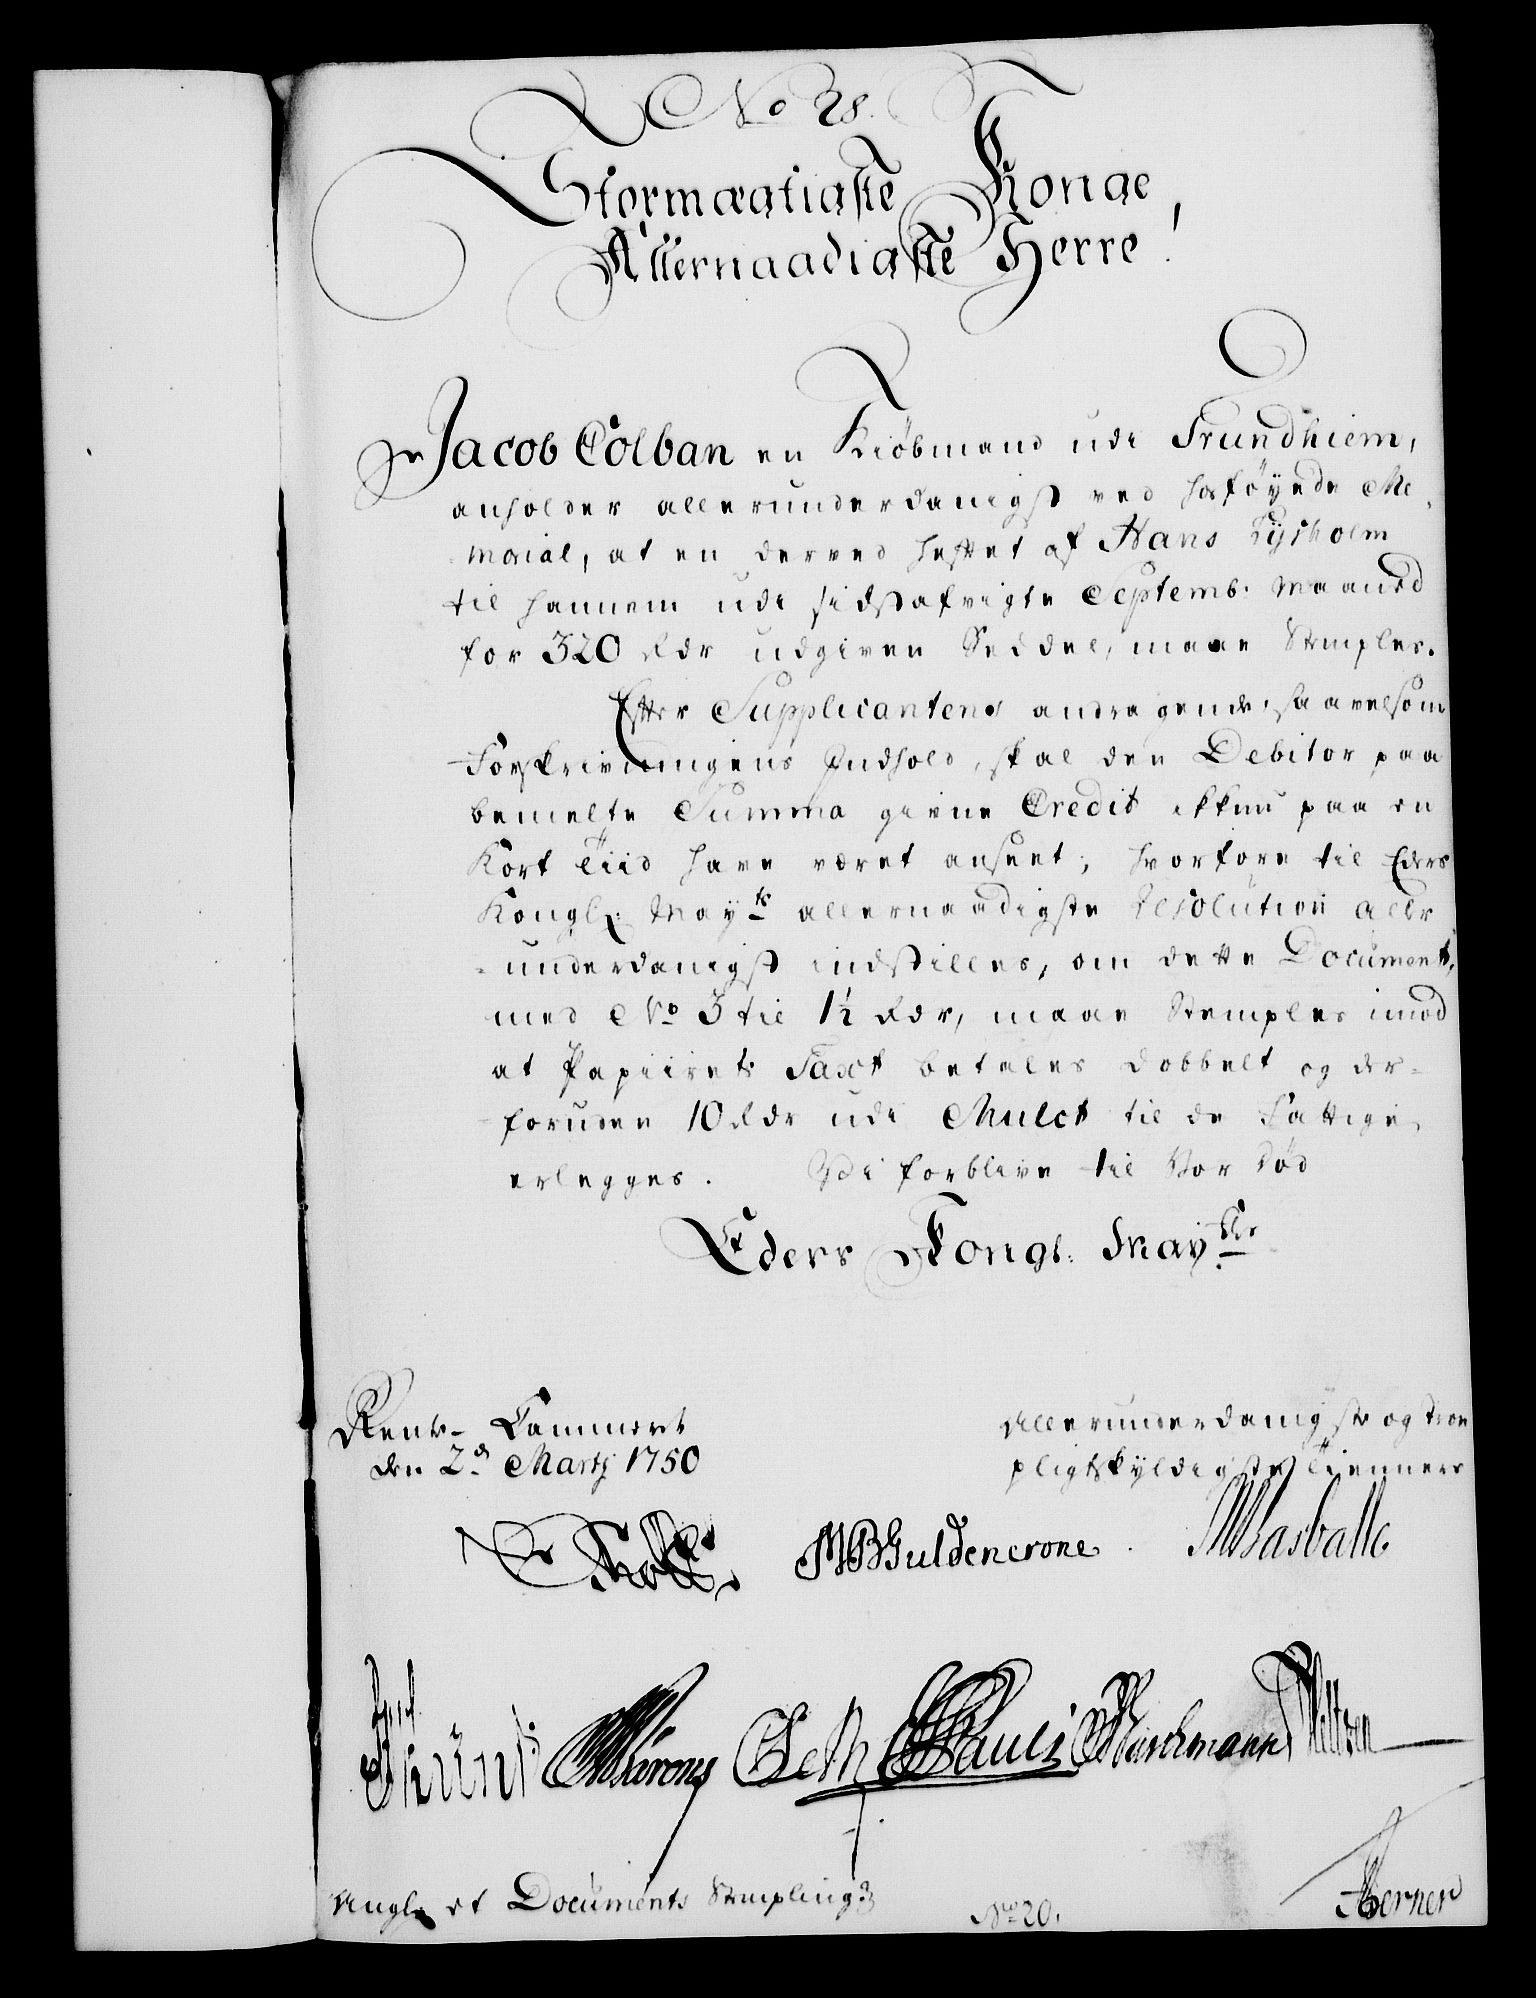 No 28.
Stormægtigste Konge,
Allernaadigste Herre!
Jacob Colban en Kiöbmand udi Trundhiem,
anholder allerunderdanigst ved hosföyede Me
morial, at en derved heftet af Hans Tÿsholm
til hannem udi sidstafvigte Septemb: Maaned
for 320 Rdr udgiven Seddel, maae Stemples.
Efter Supplicantens andragende, saavelsom
Forskrivningens Indhold, skal den Debitor paa
bemelte Summa givne Credit ikkun paa en
Kort Tiid have været anseet; hvorfore til Eders
Kongl: Mayts allernaadigste Resolution aller
-underdanigst indstilles, om dette Document,
med No 3 til 1½ Rdr, maae Stemples imod
at Papiirets Taxt betales dobbelt og der-
foruden 10 Rdr udi Mulct til de Fattige
erlegges. Vi forblive til Vor Död
Eders Kongl: May:tts
Rente-Cammeret
den 2d Martij 1750
Allerunderdanigste og troe
pligtskÿldigste Tiennere
Holst MBGuldencrone. Basballe
Pauli Marckmann
Angl: et Documents Stempling
No 20.